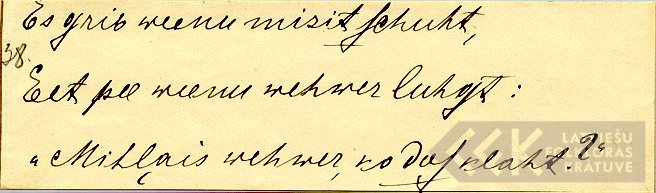 Es grib weenu mizit schuht,
38.
Eet pee weenu wehwer luhgt:
„Mihļais wehwer, ko dos klaht?“
LATVIEŠU
FOLKLORAS
KRĀTUVE